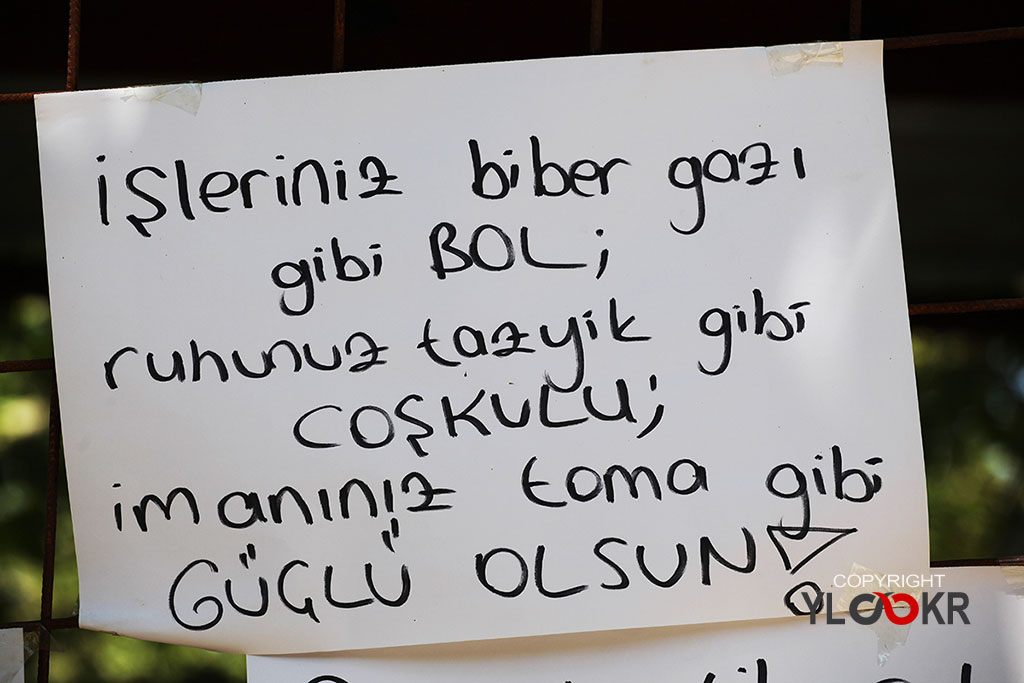 işleriniz biber gazı
gibi BOL;
ruhunuz tazyik gibi
COŞKULU;
imanınız toma gibi
GÜÇLÜ OLSUN!
COPYRIGHT
YLOOKR